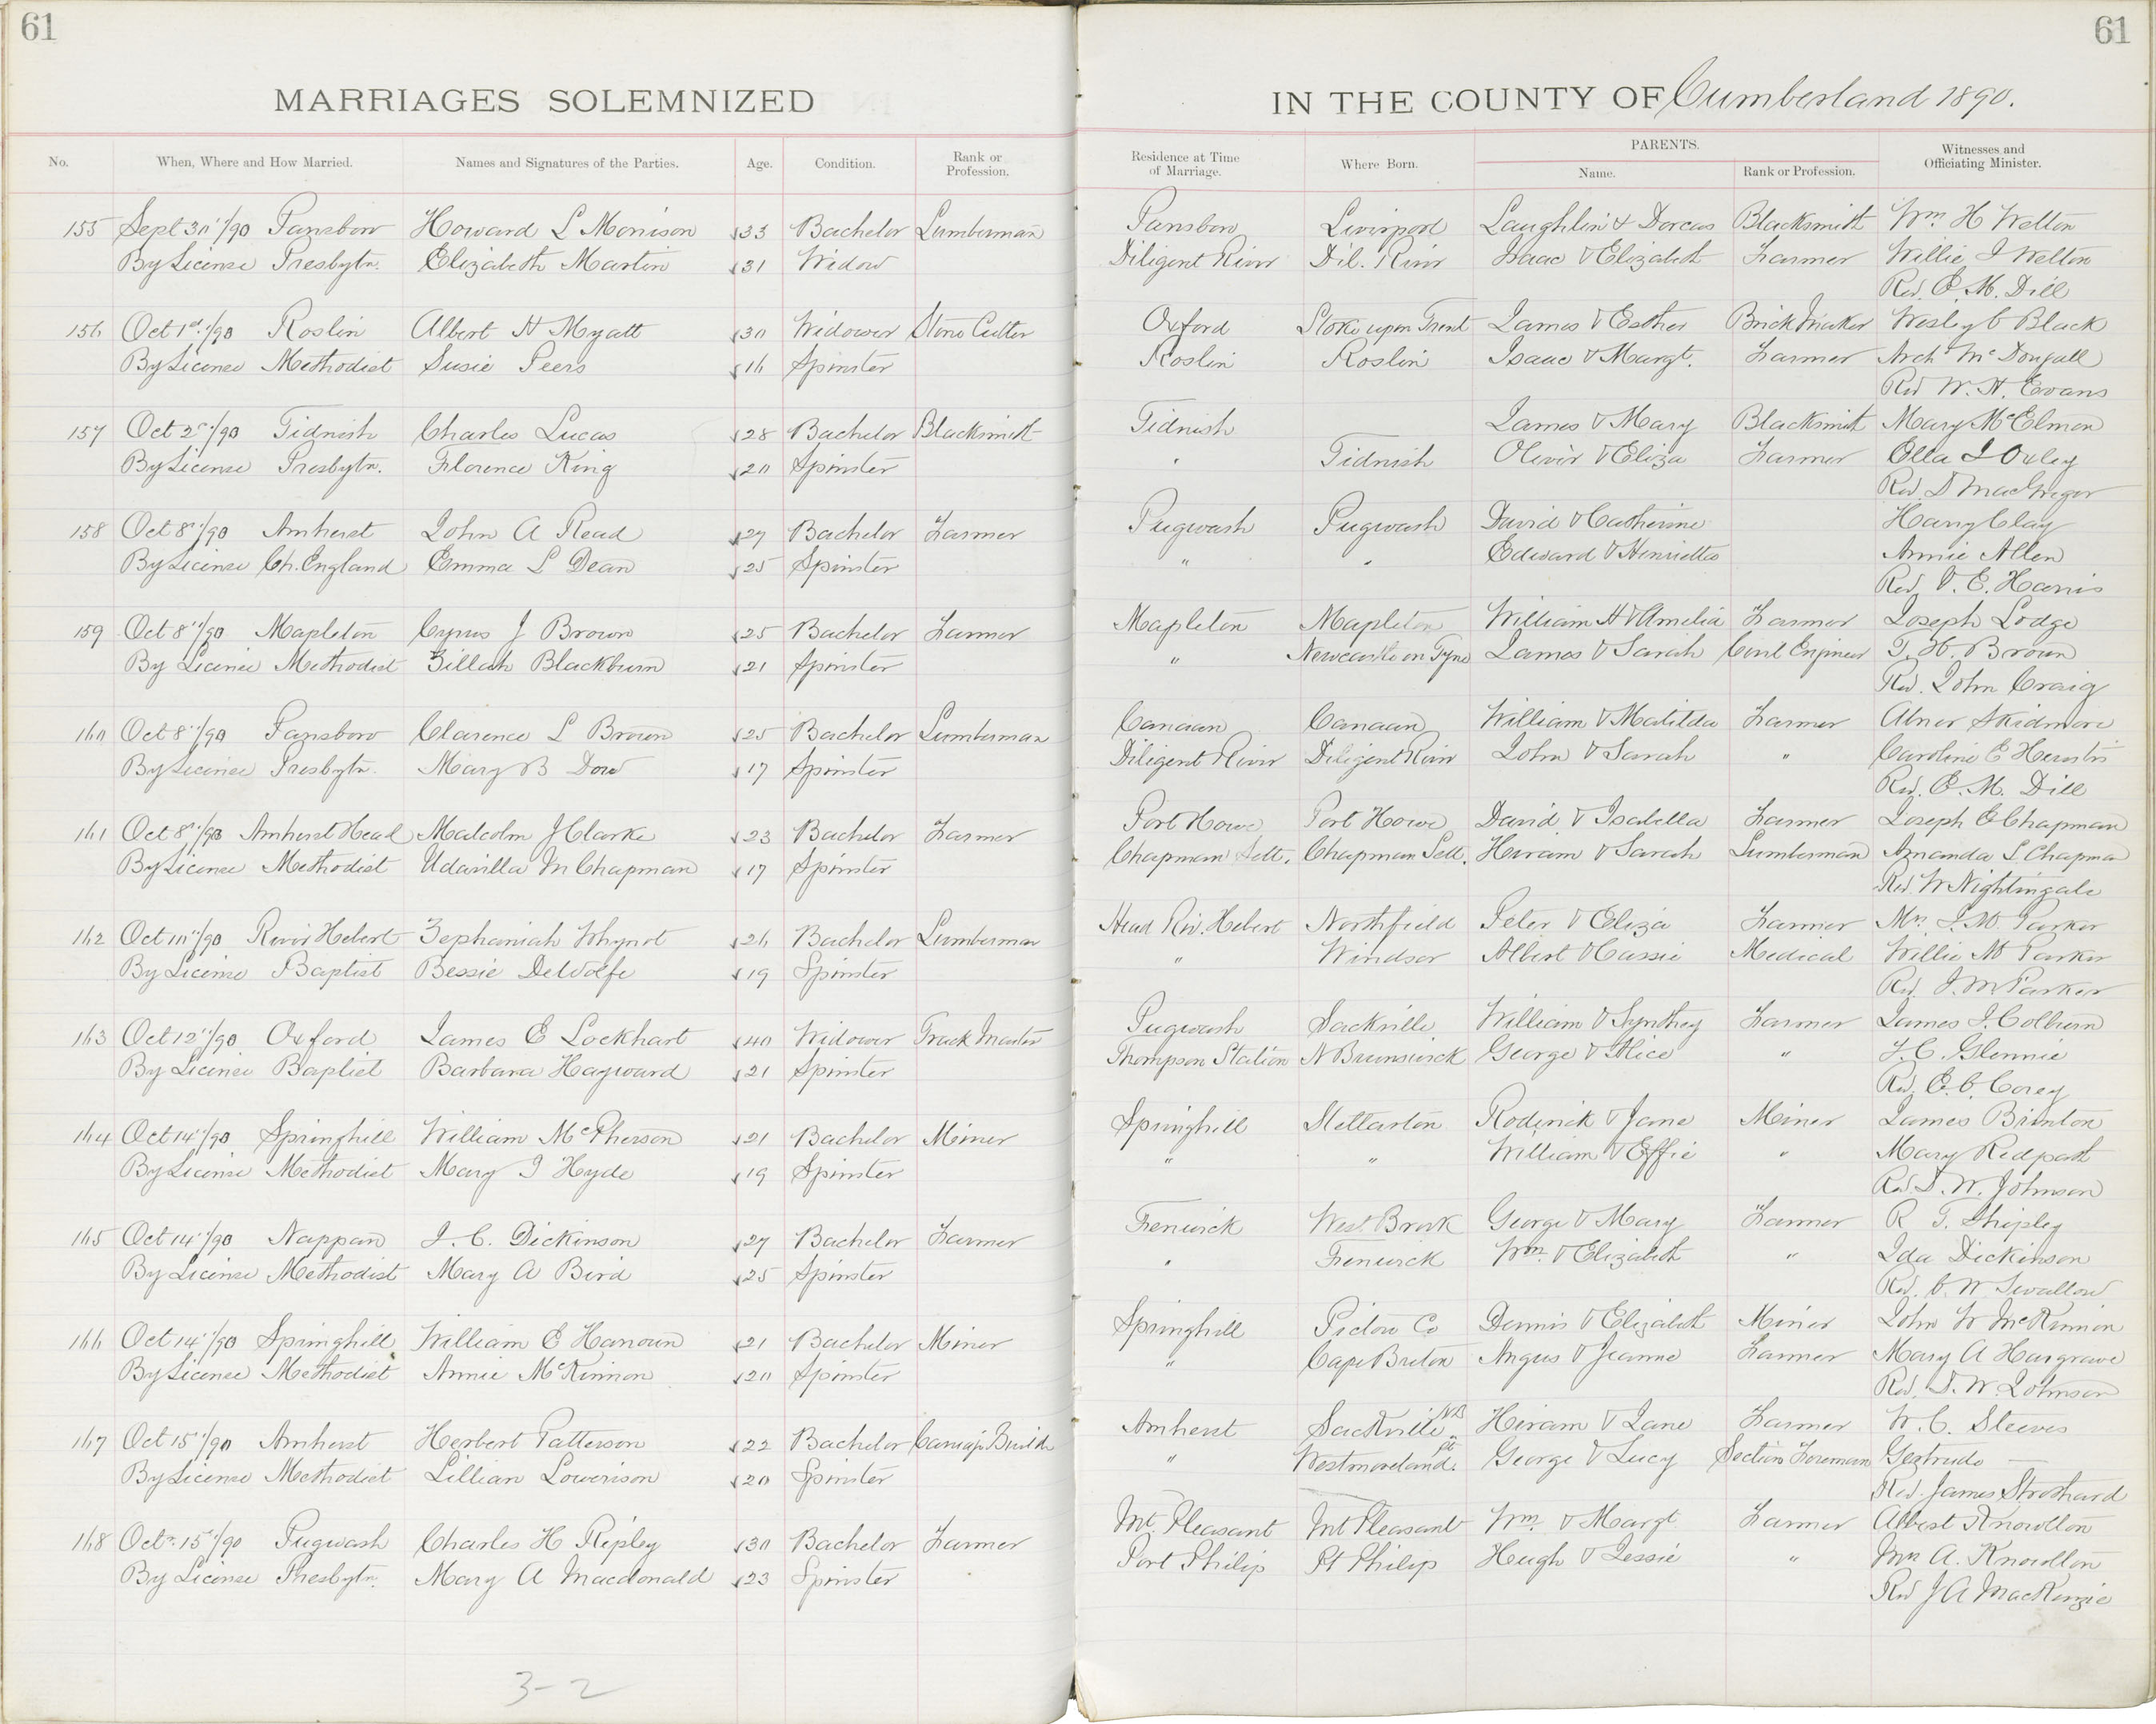 61
61
MARRIAGES SOLEMNIZED
IN THE COUNTY OF Cumberland 1890.
No. When, Where and How Married. Names and Signatures of the Parties. Age. Condition. Rank or Profession. Residence at Time of Marriage. Where Born. PARENTS. Name. Rank or Profession. Witnesses and Officiating Minister.
155 Sept 30"/90 Parrsboro Howard L Morrison 33 Bachelor Lumberman Parrsboro Liverpool Laughlin & Dorcas Blacksmith Wm. H Welton
By License Presbytn. Elizabeth Martin 31 Widow Diligent River Dil. River Isaac & Elizabeth Farmer Willie J Welton
Rev. E. M. Dill
156 Oct 1st/90 Roslin Albert H Myatt 30 Widower Stone Cutter Oxford Stoke upon Trent James & Esther Brick Maker Wesley C Black
By License Methodist Susie Peers 16 Spinster Roslin Roslin Isaac & Margt. Farmer Archd McDougall
Rev W. H. Evans
157 Oct 2"/90 Tidnish Charles Lucas 28 Bachelor Blacksmith Tidnish James & Mary Blacksmith Mary McElmon
By License Presbytn. Florence King 20 Spinster " Tidnish Oliver & Eliza Farmer Ella J Oxley
Rev. D MacGregor
158 Oct 8"/90 Amherst John A Read 27 Bachelor Farmer Pugwash Pugwash David & Catherine Harry Clay
By License Ch. England Emma L Dean 25 Spinster " " Edward & Henrietta Annie Allen
Rev. V. E. Harris
159 Oct 8"/90 Mapleton Cyrus J Brown 25 Bachelor Farmer Mapleton Mapleton William H & Amelia Farmer Joseph Lodge
By License Methodist Zillah Blackburn 21 Spinster " Newcastle on Tyne James & Sarah Civil Engineer T. H. Brown
Rev. John Craig
160 Oct 8"/90 Parrsboro Clarence L Brown 25 Bachelor Lumberman Canaan Canaan William & Matilda Farmer Abner Skidmore
By License Presbytn. Mary B Dow 17 Spinster Diligent River Diligent River John & Sarah " Caroline E
Rev. E. M. Dill
161 Oct 8"/90 Amherst Head Malcolm J Clarke 23 Bachelor Farmer Port Howe Port Howe David & Isabella Farmer Joseph E Chapman
By License Methodist Udavilla M Chapman 17 Spinster Chapman Sett. Chapman Sett. Hiram & Sarah Lumberman Amanda L Chapman
Rev. W Nightingale
162 Oct 10"/90 River Hebert Zephaniah Whynot 26 Bachelor Lumberman Head Riv. Hebert Northfield Peter & Eliza Farmer Mrs. J. M. Parker
By License Baptist Bessie DeWolfe 19 Spinster " Windsor Albert & Cassie Medical Willie M Parker
Rev. J. M Parker
163 Oct 12"/90 Oxford James E Lockhart 40 Widower Track Master Pugwash Sackville William & Synthey Farmer James J. Colburn
By License Baptist Barbara Hayward 21 Spinster Thompson Station N Brunswick George & Alice " J. C. Glennie
Rev. E. C. Corey
164 Oct 14"/90 Springhill William McPherson 21 Bachelor Miner Springhill Stellarton Roderick & Jane Miner James Brinton
By License Methodist Mary J Hyde 19 Spinster " " William & Effie " Mary Redpath
Rev D. W. Johnson
165 Oct 14"/90 Nappan J. C. Dickinson 27 Bachelor Farmer Fenwick West Brook George & Mary Farmer R T. Shipley
By License Methodist Mary A Bird 25 Spinster " Fenwick Wm. & Elizabeth " Ida Dickinson
Rev. C. W. Swallow
166 Oct 14"/90 Springhill William E Hanoun 21 Bachelor Miner Springhill Pictou Co Dennis & Elizabeth Miner John W McKinnon
By License Methodist Annie McKinnon 20 Spinster " Cape Breton Angus & Jeanne Farmer Mary A Hargrave
Rev. D. W. Johnson
167 Oct 15"/90 Amherst Herbert Patterson 22 Bachelor Carriage Builder Amherst Sackville NB Hiram & Jane Farmer W. C. Steeves
By License Methodist Lillian Lowerison 20 Spinster " Westmoreland Pt. George & Lucy Section Foreman Gertrude —
Rev. James Strothard
168 Octr. 15"/90 Pugwash Charles H Ripley 30 Bachelor Farmer Mt. Pleasant Mt Pleasant Wm. & Margt Farmer Albert Knowlton
By License Presbytn. Mary A Macdonald 23 Spinster Port Philip Pt Philip Hugh & Jessie " Mrs A. Knowlton
Rev J A MacKenzie
3-2